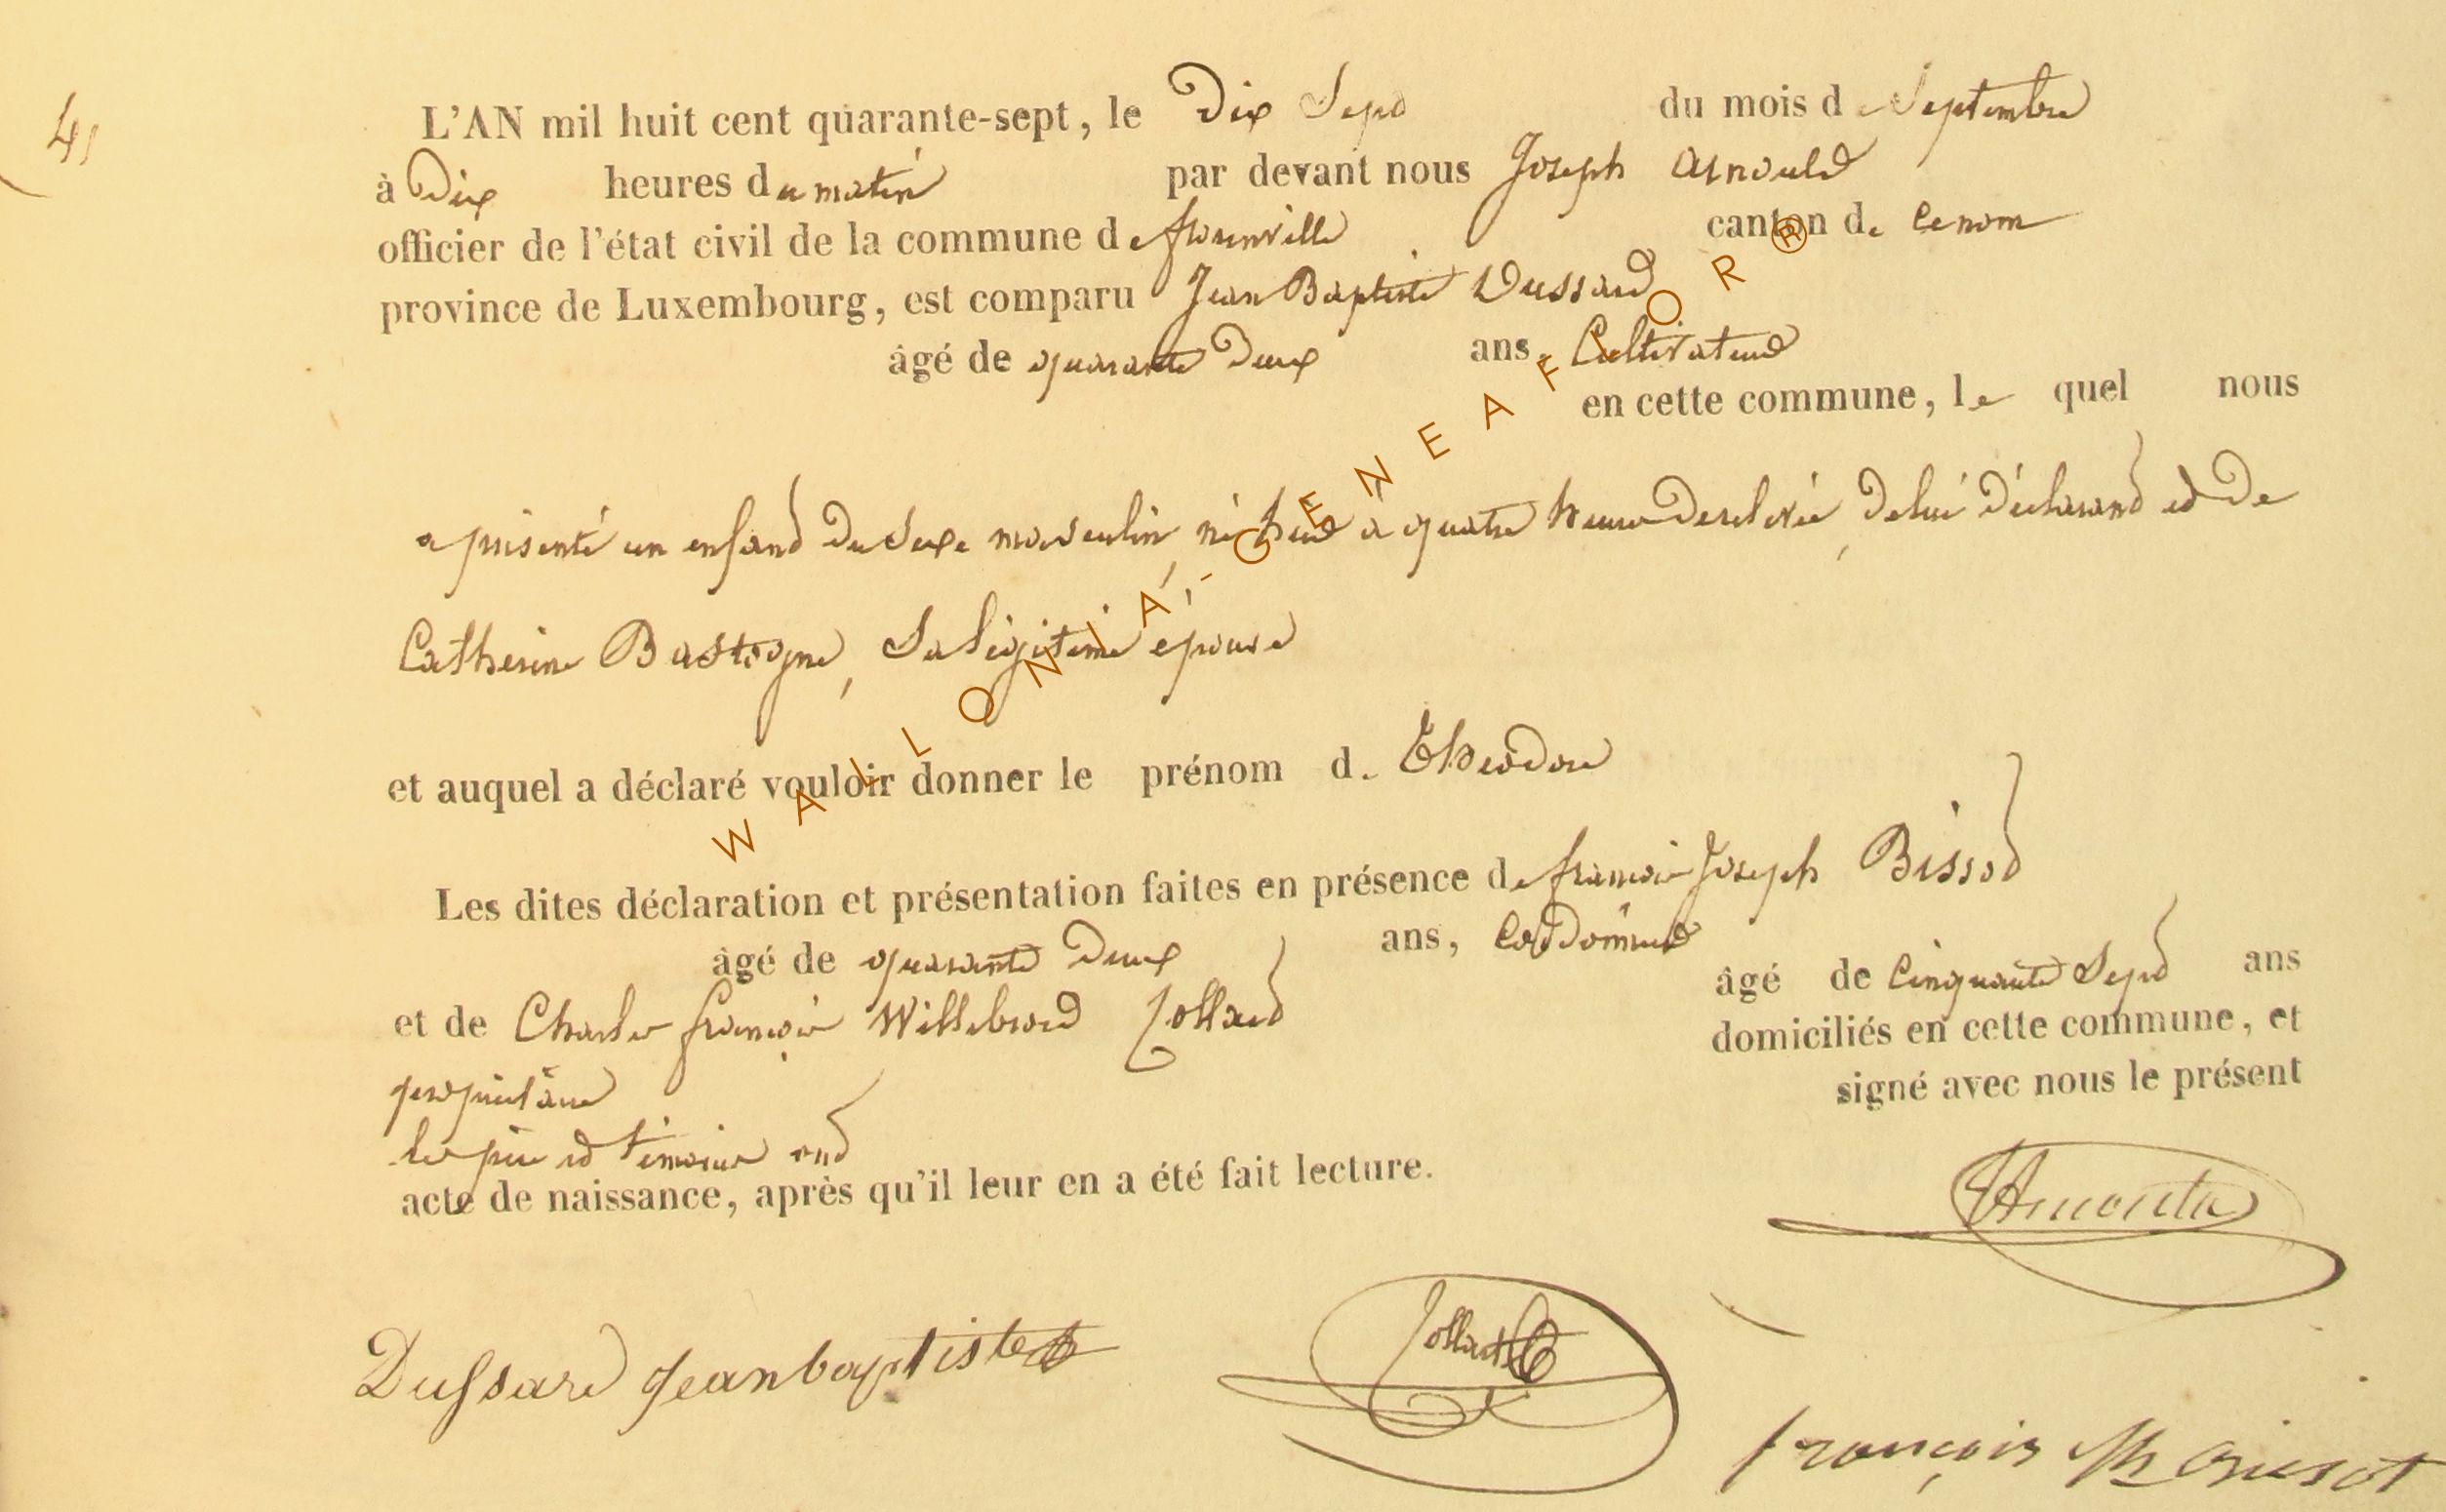 41
L'AN mil huit cent quarante-sept, le Dix Sept du mois de Septembre
à Dix heures du matin par devant nous Joseph Arnould
officier de l'état civil de la commune de florenville canton de ce nom
province de Luxembourg, est comparu Jean Baptiste Dussard
âgé de quarante Deux ans, Cultivateur
en cette commune, le quel nous
a présenté un enfant Du Sexe masculin, né hier à quatre heures Derelevée, De lui Déclarant et De
Catherine Bastogne, Sa légitime épouse
et auquel a déclaré vouloir donner le prénom de Théodore
Les dites déclaration et présentation faites en présence de françois Joseph Bissot
âgé de quarante Deux ans, Cordonnier
et de Charles françois Willebrord Jollard âgé de Cinquante Sept ans
propriétaire domiciliés en cette commune, et
les père et témoins ont signé avec nous le présent
acte de naissance, après qu'il leur en a été fait lecture.
Dussard Jean baptiste
françois
WALLONIA-GENEAFLOR®